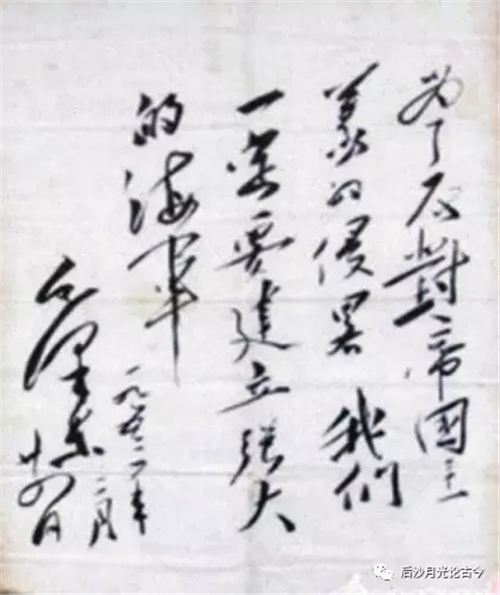 为了反對帝國主
義的侵畧 我们
一定要建立强大
的海军
毛泽东
一九五三年
二月
廿四日
后沙月光论古今